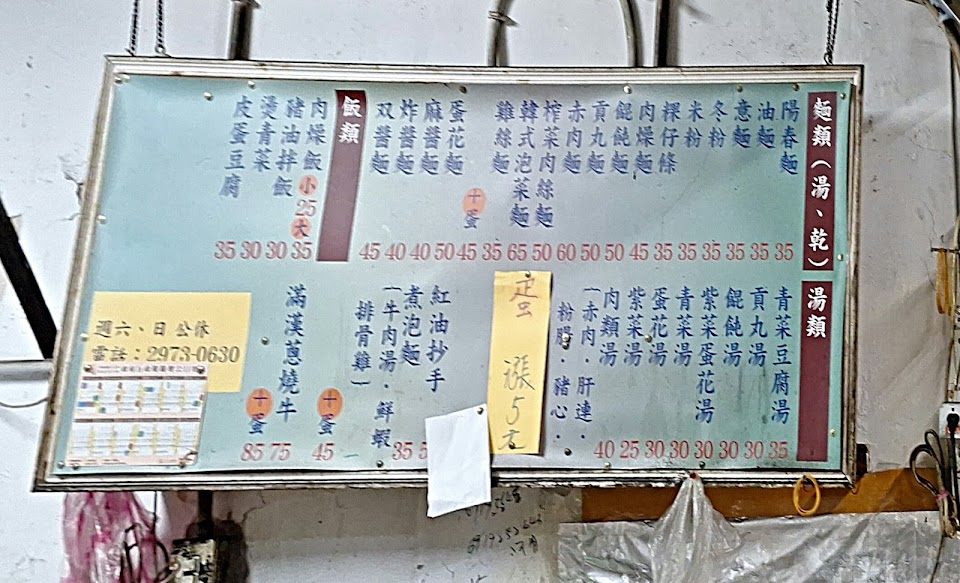 麵類（湯、乾）
陽春麵 35
油麵 35
意麵 35
冬粉 35
米粉 35
粿仔條 35
肉燥麵 45
餛飩麵 50
貢丸麵 50
赤肉麵 60
榨菜肉絲麵 50
韓式泡菜麵 65
雞絲麵 35
十蛋 45
蛋花麵 50
麻醬麵 40
炸醬麵 40
双醬麵 45
飯類
肉燥飯 小25大35
豬油拌飯 30
燙青菜 30
皮蛋豆腐 35
湯類
青菜豆腐湯 35
貢丸湯 30
餛飩湯 30
紫菜蛋花湯 30
青菜湯 30
蛋花湯 30
紫菜湯 25
肉類湯 40
（赤肉．肝連．
粉腸．豬心．
蛋 漲5元
紅油抄手
煮泡麵 35
（牛肉湯．鮮蝦
排骨雞）
十蛋 45
滿漢蔥燒牛 75
十蛋 85
週六、日 公休
電話：2973-0630